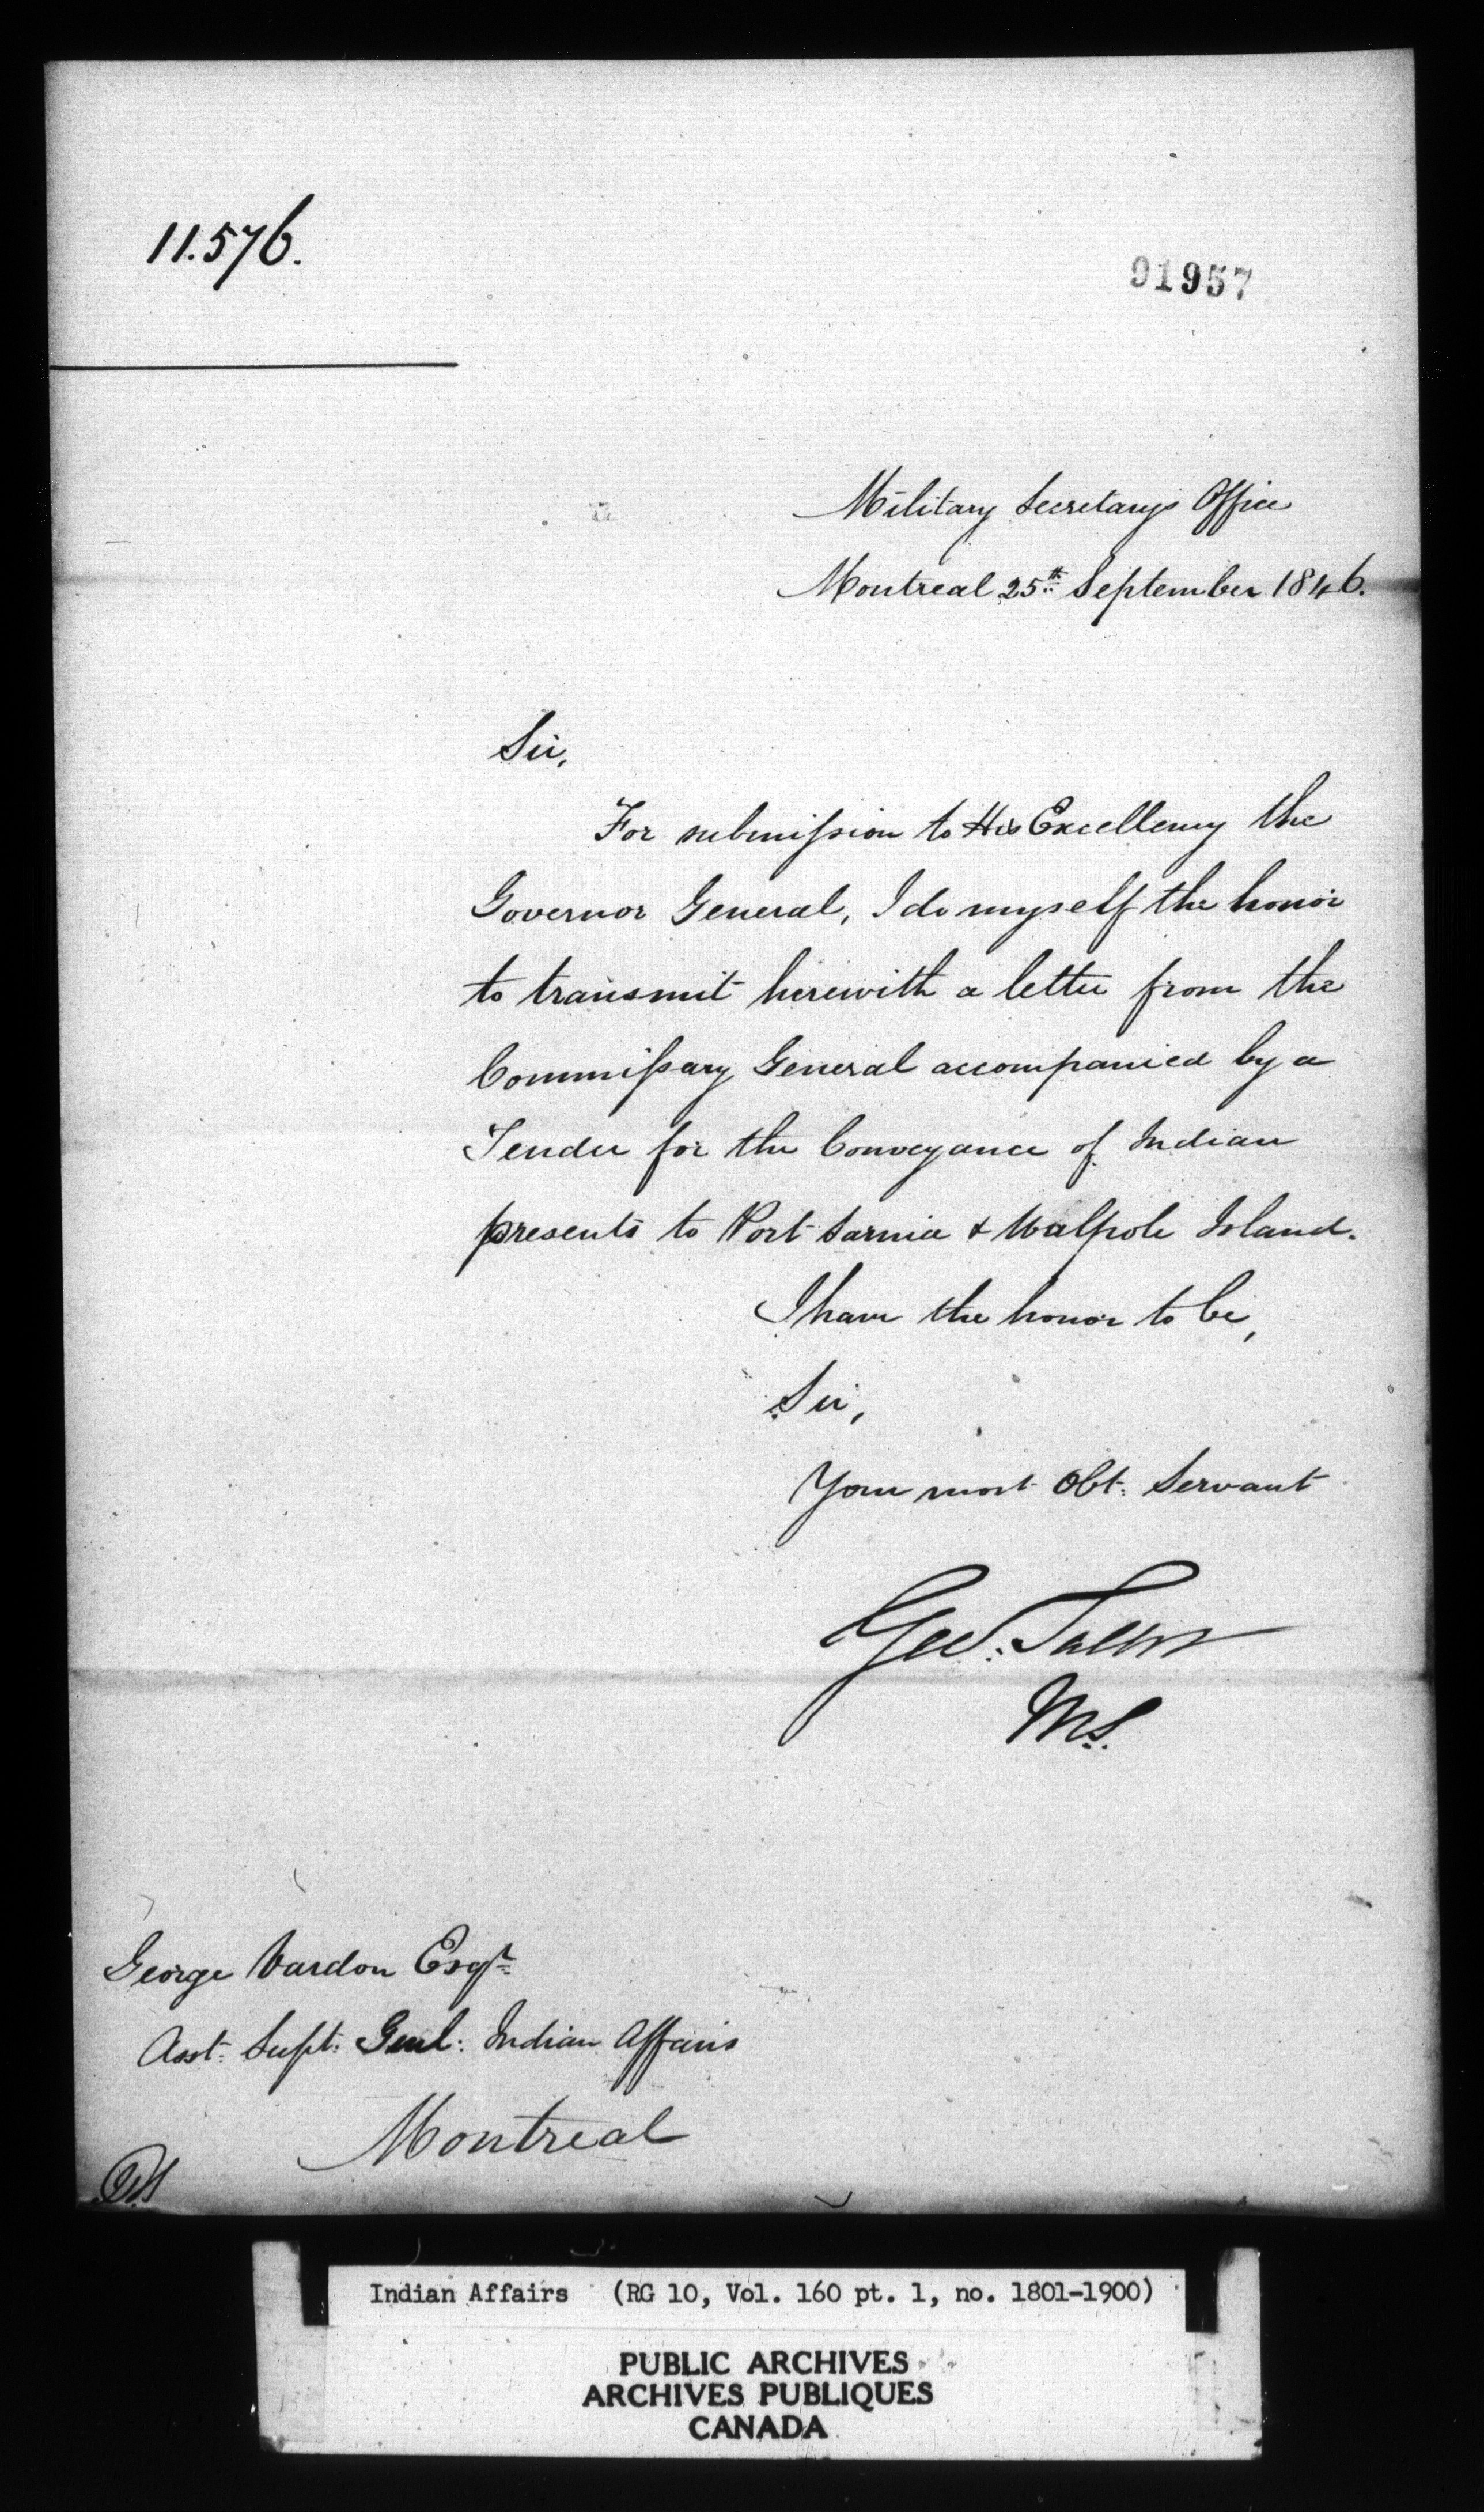 11.576.
91957
Military Secretarys Office
Montreal 25th September 1846.
Sir,
For submission to His Excellency the
Governor General, I do myself the honor
to transmit herewith a letter from the
Commissary General accompanied by a
Tender for the Conveyance of Indian
presents to Port Sarnia & Walpole Island.
I have the honor to be,
Sir,
Your most Obt: Servant
Geo: Talbot
M.S.
George Vardon Esqr
Asst: Supt: Genl: Indian Affairs
Montreal
Indian Affairs (RG 10, Vol. 160 pt. 1, no. 1801-1900)
PUBLIC ARCHIVES
ARCHIVES PUBLIQUES
CANADA